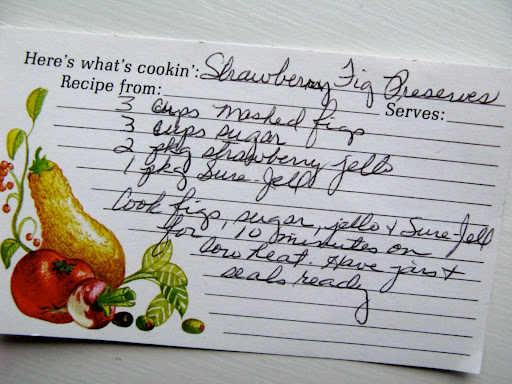 Here's what's cookin': Strawberry Fig Preserves
Recipe from: Serves:
3 cups mashed figs
3 cups sugar
2 pkg strawberry jello
1 pkg Sure Jell
Cook figs, sugar, jello & Sure-Jell
for 10 minutes on
low heat. Have jars &
seals ready